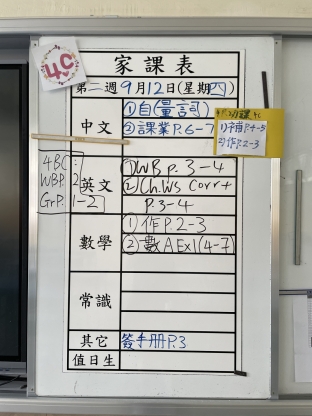 4C
家課表
第二週9月12日(星期四)
中文
①自(量詞)
②課業P.6-7
4C
1)補P.4-5
2)作P.2-3
4BC:
WBP. 2
GrP. 1-2
英文
①WB p. 3-4
②Ch.Ws Corr+
p.3-4
數學
①作P.2-3
②數A Ex1(4-7)
常識
其它
簽手冊P.3
值日生